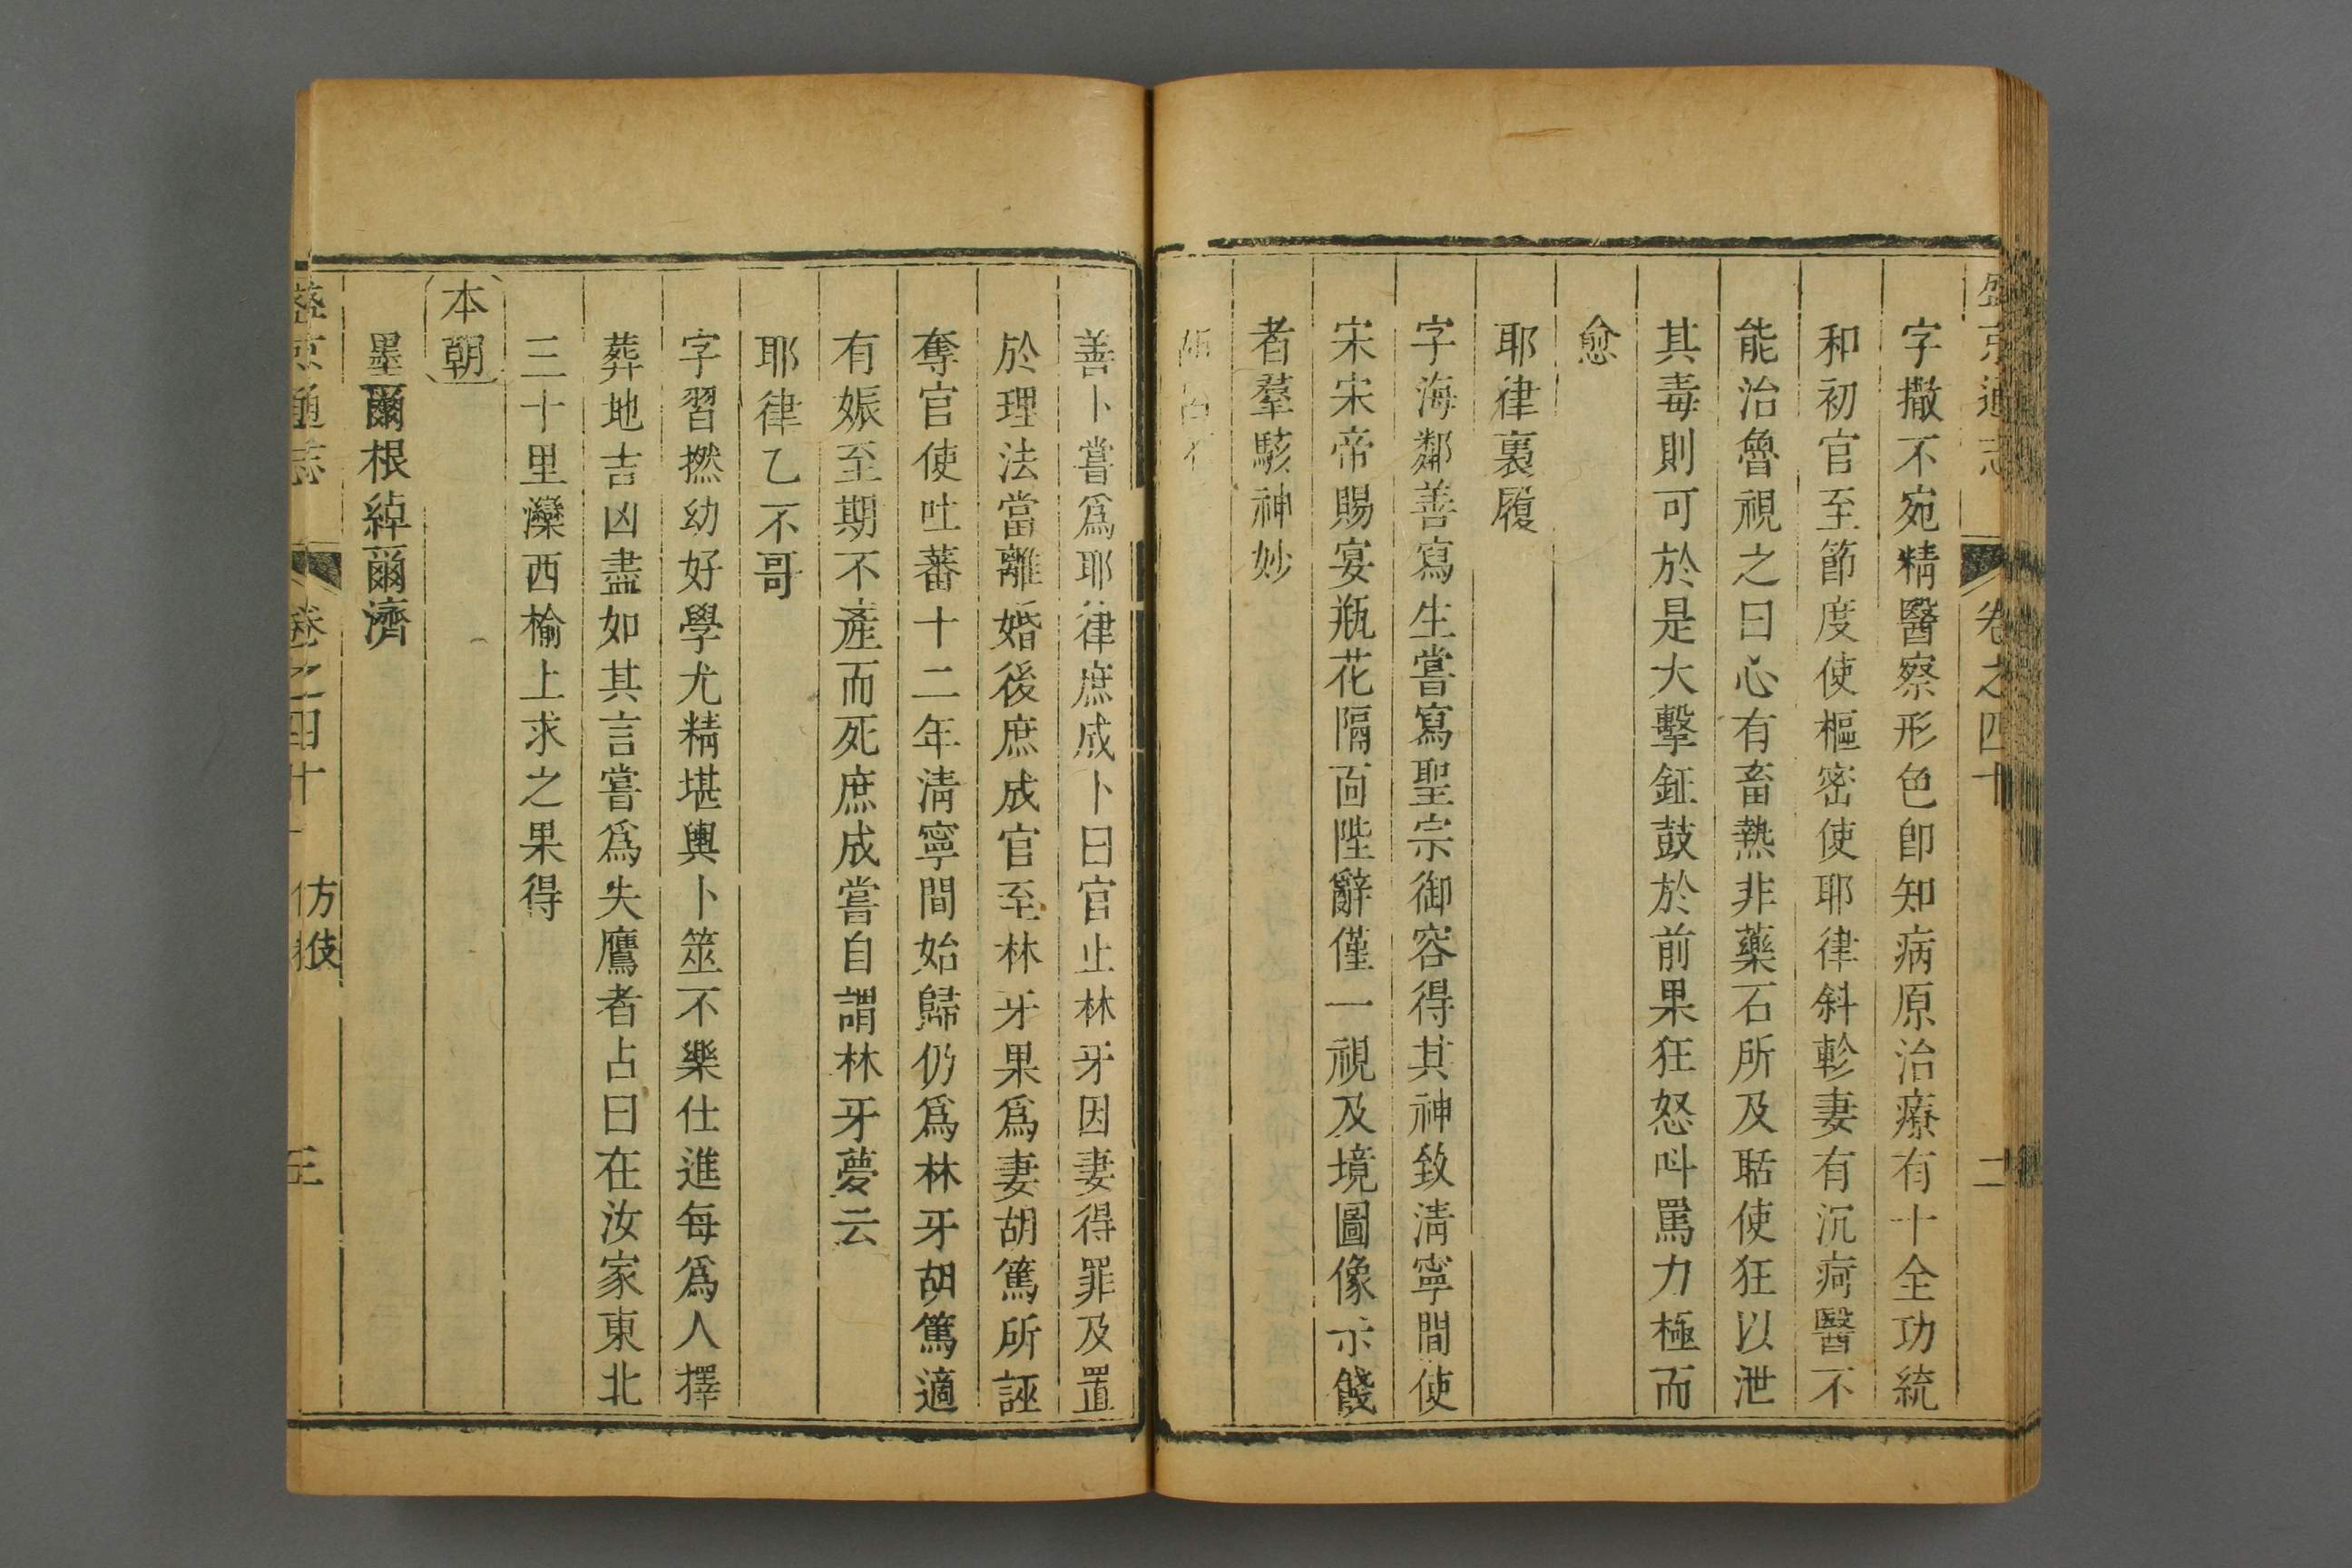 盛京通志 卷之四十 二
字撒不宛精醫察形色卽知病原治療有十全功統
和初官至節度使樞密使耶律斜軫妻有沉疴醫不
能治魯視之曰心有畜熱非藥石所及聒使狂以泄
其毒則可於是大擊鉦鼓於前果狂怒呌罵力極而
愈
耶律裏履
字海鄰善寫生嘗寫聖宗御容得其神致淸寧間使
宋宋帝賜宴瓶花隔面陛辭僅一視及境圖像示餞
者羣駭神妙
善卜嘗爲耶律庶成卜曰官止林牙因妻得罪及置
於理法當離婚後庶成官至林牙果爲妻胡篤所誣
奪官使吐蕃十二年淸寧間始歸仍爲林牙胡篤適
有娠至期不產而死庶成嘗自謂林牙夢云
耶律乙不哥
字習撚幼好學尤精堪輿卜筮不樂仕進每爲人擇
葬地吉凶盡如其言嘗爲失鷹者占曰在汝家東北
三十里濼西楡上求之果得
本朝
墨爾根綽爾濟
盛京通志 卷之四十 方伎 三